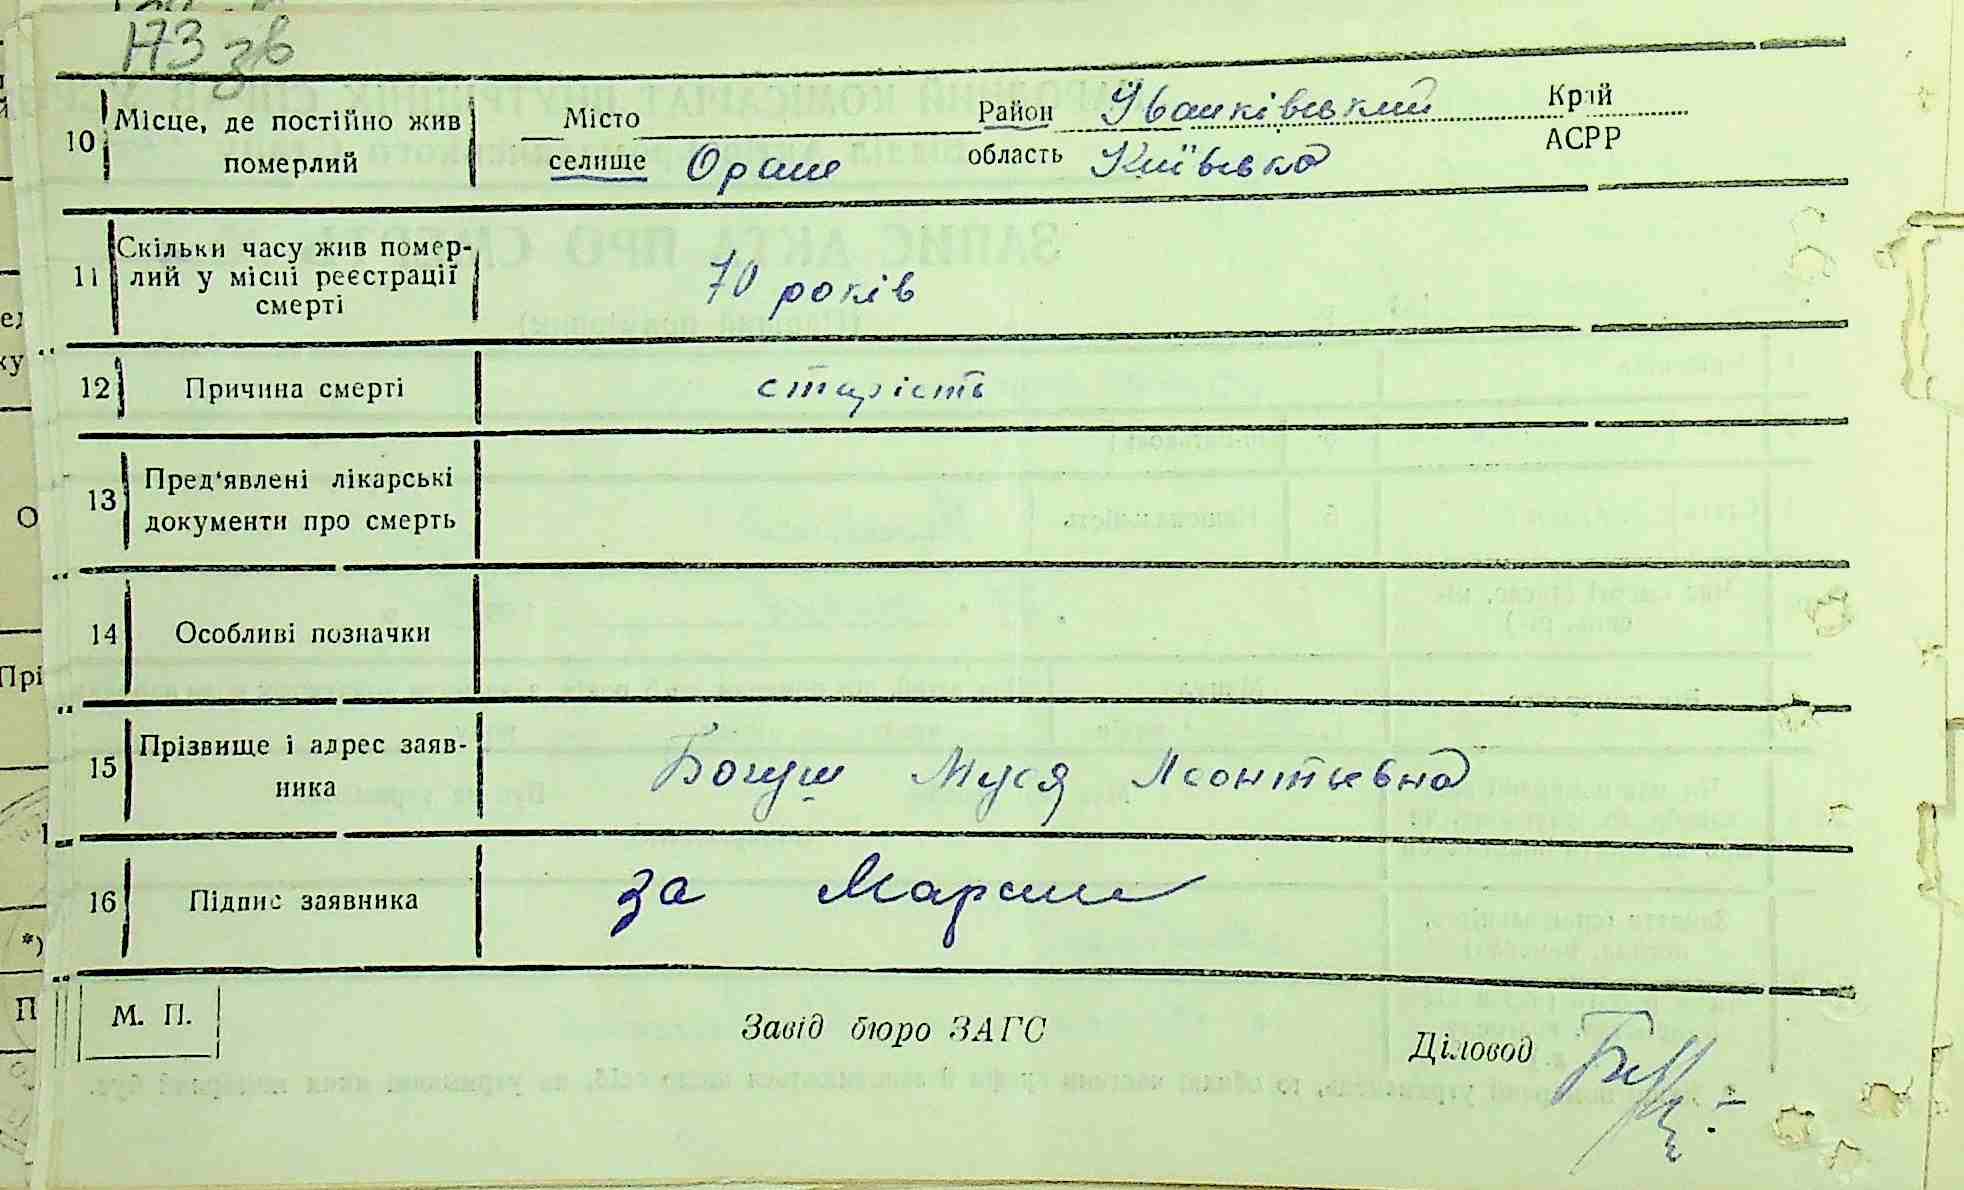 173 зв
10 Місце, де постійно жив померлий Місто Район Іванківський Край
селище Оране область Київська АСРР
11 Скільки часу жив помер-
лий у місці реєстрації
смерті 70 років
12 Причина смерті старість
13 Пред'явлені лікарські
документи про смерть
14 Особливі позначки
15 Прізвище і адрес заяв-
ника Богуш Муся Леонтьевна
16 Підпис заявника за
М. П. Завід бюро ЗАГС Діловод